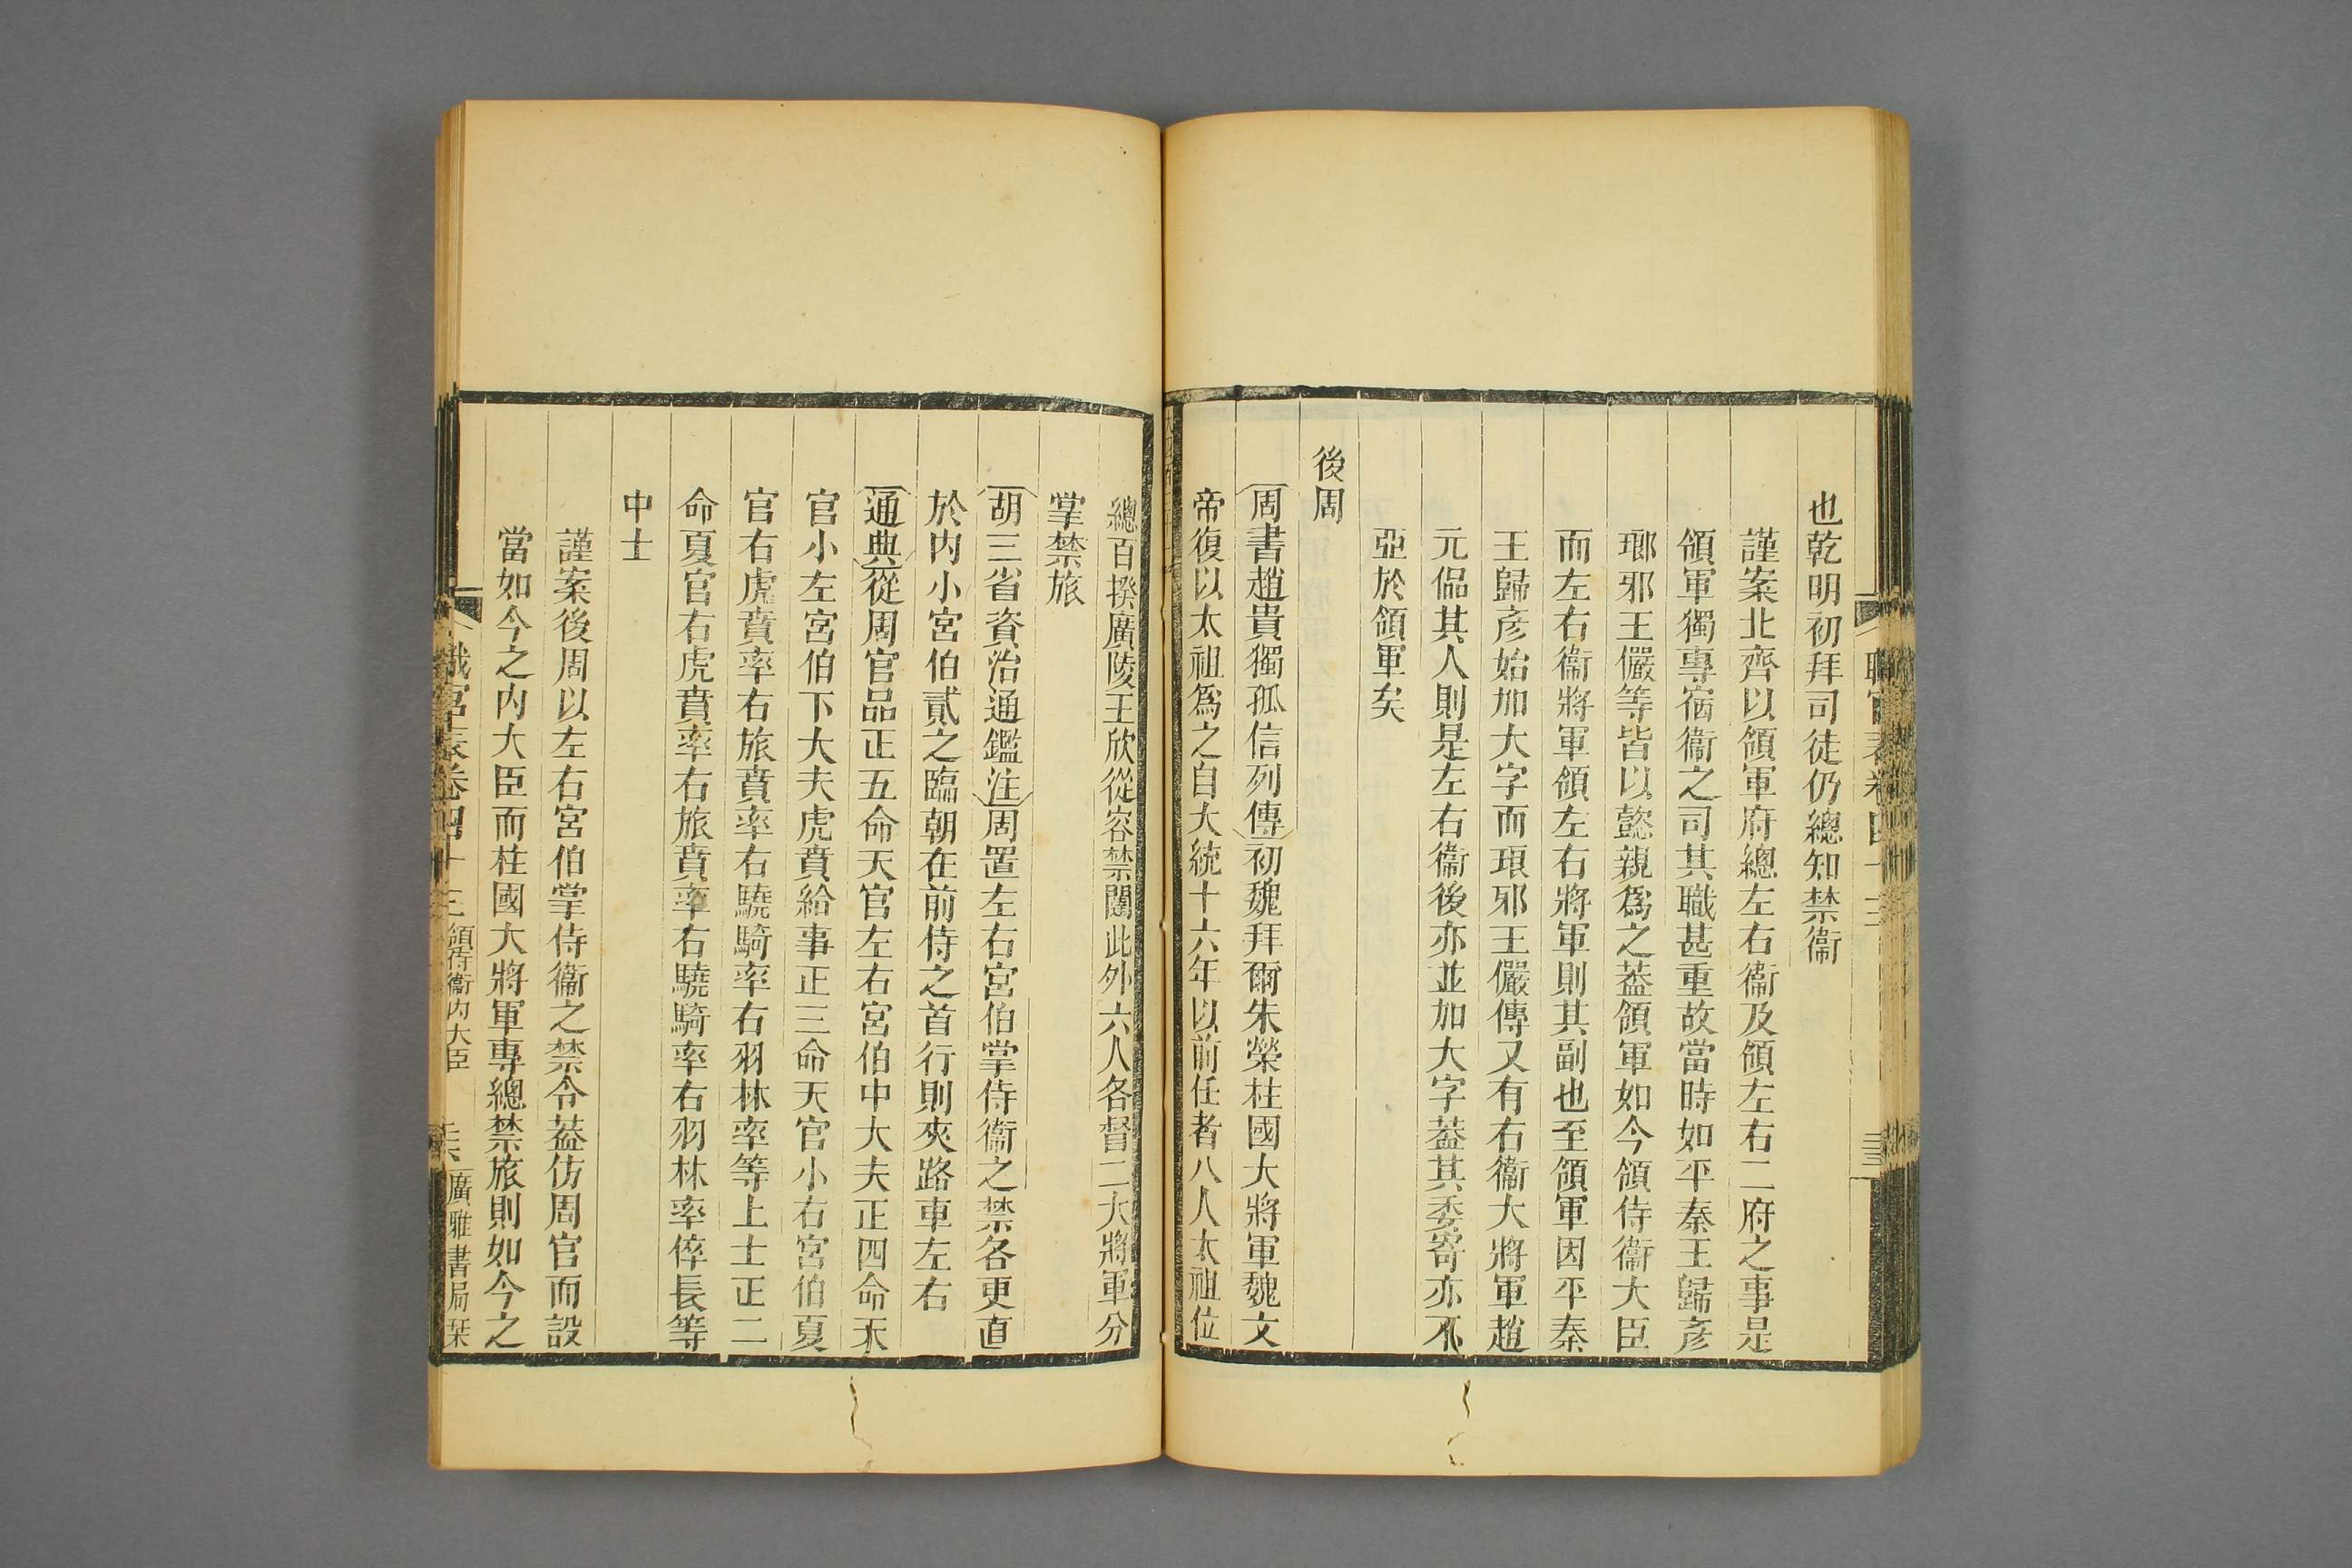 也乾明初拜司徒仍總知禁衞
謹案北齊以領軍府總左右衞及領左右二府之事是
領軍獨專宿衞之司其職甚重故當時如平秦王歸彥
瑯邪王儼等皆以懿親爲之葢領軍如今領侍衞大臣
而左右衞將軍領左右將軍則其副也至領軍因平秦
王歸彥始加大字而琅邪王儼傳又有右衞大將軍趙
元偘其人則是左右衞後亦並加大字葢其委寄亦不
亞於領軍矣
後周
周書趙貴獨孤信列傳初魏拜爾朱榮柱國大將軍魏文
帝復以太祖爲之自大統十六年以前任者八人太祖位
總百揆廣陵王欣從容禁闈此外六人各督二大將軍分
掌禁旅
胡三省資治通鑑注周置左右宮伯掌侍衞之禁各更直
於內小宮伯貳之臨朝在前侍之首行則夾路車左右
通典從周官品正五命天官左右宮伯中大夫正四命天
官小左宮伯下大夫虎賁給事正三命天官小右宮伯夏
官右虎賁率右旅賁率右驍騎率右羽林率等上士正二
命夏官右虎賁率右旅賁率右驍騎率右羽林率倅長等
中士
謹案後周以左右宮伯掌侍衞之禁令葢仿周官而設
當如今之內大臣而柱國大將軍專總禁旅則如今之
職官表卷四十三 領侍衞內大臣 廣雅書局栞